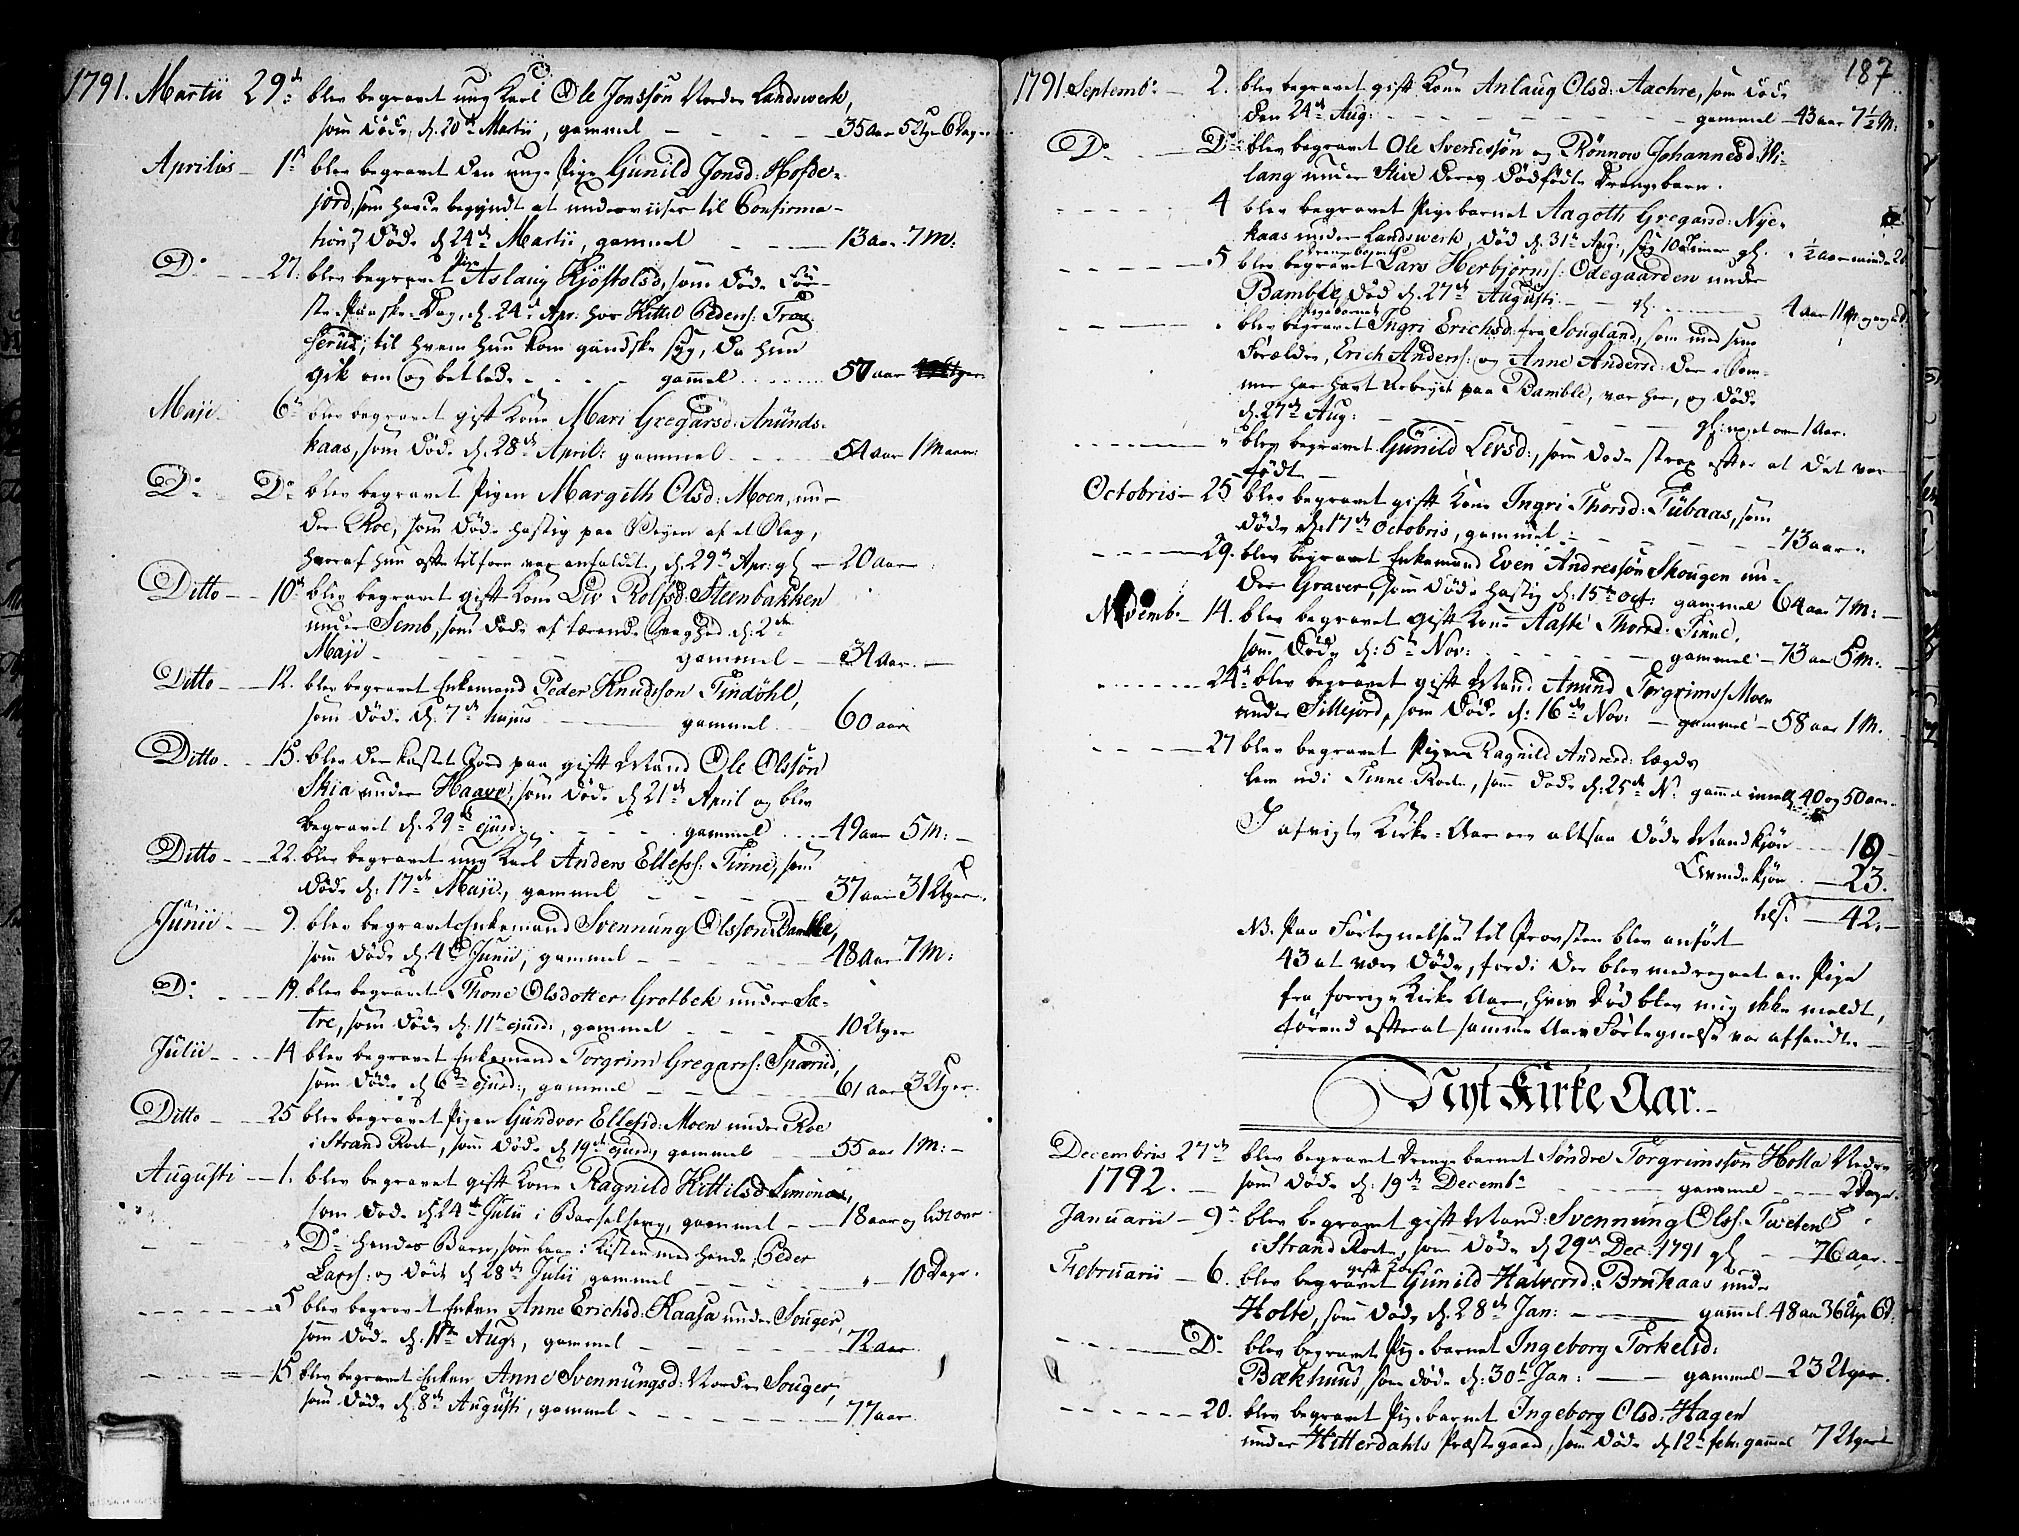 1791. Martii 29de blev begravet ung Karl Ole Jonssön Nordre Landswerk,
som döde d. 20de Martii, gammel - - - 35 Aar 5 Uger 6 Dage
Aprilis - 1ste blev begravet den unge Pige Gunild Jonsd: Hofde-
jord, som havde begyndt at underviises til Confirma-
tion, döde d. 24de Martii, gammel - - - 13 aar 7 M:
Do - - - 27. blev begravet Pige Aslaug Kjöstolsd, som döde För-
ste Paaske-Dag, d. 24de Apr: hos Kittil Pedens: Traa
serud, til hvem hun kom gandske syg, da hun
gik om og betlede - - - gammel - - - 57 aar
Maji - 6te blev begravet gift Kone Mari Gregarsd: Anunds-
kaas, som döde d. 28de April: gammel - - - 54 aar 1 Maan:
Do - - Do blev begravet Pigen Margith Olsd: Moen, un-
der Roe, som döde hastig paa Veyen af et Slag,
hvoraf hun ofte tilforn var anfaldet, d. 29de Apr: gl - 20 aar
Ditto - - 10de blev begravet gift Kone Liv Rolfsd: Steenbakken
under Semb, som döde af tærende Svaghed d: 2den
Maji - - - gammel - - 34 aar. -
Ditto - - 12. blev begravet Enkemand Peder Knudssön Tindöhl,
som döde d. 7de hujus - - - gammel - 60 aar
Ditto - - 15. blev der kastet Jord paa gift Mand Ole Olssön
Skia under Haave, som döde d. 21de April og blev
begravet d. 29de ejusd: - - - gammel - - 49 aar 5 M: -
Ditto - - 22. blev begravet ung Karl Anders Ellefss: Tinne, som
döde d. 17de Maji, gammel - - - 37 aar 31 Uger.
Junii - - 9. blev begravet Enkemand Svennung Olsson Bamble,
som döde d. 4de Junii, gammel - - - 48 Aar 7 M:
Do - - - 19. blev begravet Thone Olsdotter Grotbek under Sæ-
tre, som döde d. 11te ejusd:, gammel - - - 10 Uger
Julii - - - 14 blev begravet Enkemand Torgrim Gregarss: Sparud,
som döde d. 6te ejusd:, gammel - - - 61 aar 3 Uger.
Ditto - - - 25 blev begravet Pigen Gundvor Ellefsd: Moen under Roe
i Strand Roet, som döde d. 19de ejusd, gammel - - - 55 aar 1 M: -
Augusti - - 1. blev begravet gift Kone Ragnild Kittilsd
som döde d. 24de Julii i Barselseng, gammel - - 18 aar og lidt over
" Do hendes Barn, som laae i Kisten med hende, Peder
Larss: og döde d 28de Julii gammel - - - " - 10 Dage.
- - - 5 blev begravet Enken Anne Erichsd: Kaasa under Souger,
som döde d. 1te Aug:, gammel - - - 72 aar
- - - 15. blev begravet Enken Anne Svennungsd: Nordre Souger,
som döde d: 8de Augusti, gammel - - - 77 aar.
187
1791 Septembr: - 2. blev begravet gift Kone Anlaug Olsd: Aachre, som döde
den 24de Aug: - - - gammel - 43 aar 7 1/2 M:
Do - - - Do blev begravet Ole Svendssön og Rönnow Johannesd: Mi-
lang under Skive deres dödfödte Drengebarn.
- - - 4 blev begravet Pigebarnet Aagoth Gregarsd: Nye-
kaas under Landswerk, död d. 31te Aug:, gl. 1/2 aar
- - - 5 blev begravet Drengebarnet Lars Herbjörns: Ödegaarden under
Bamble, död d. 27de Augusti - - gl. - - - 4 aar 11 M:
- - - " blev begravet Pigebarnet Ingri Erichsd: fra Sougland, som med sine
Forældre, Erich Anders: og Anne Andersd: der i Som-
mer har havt Arbeyde paa Bamble, var her, og döde
d. 27de Aug: - - - gl: noget over 1 Aar.
- - - " blev begravet Gunild Levsd:, som döde strax efter at det var
födt -
Octobris - 25 blev begravet gift Kone Ingri Thorsd: Tubaas, som
döde d. 17de Octobris, gammel - - - 73 aar.
- - - 29. blev begravet Enkemand Even Andressön Skougen un-
der Graver, som döde hastig d: 15de Oct: gammel 64 aar 7 M: -
Novemb: - 14. blev begravet gift Kone Aaste Thorsd: Tinne,
som döde d: 5te Nov: - - - gammel - 73 aar 5 M. -
- - - 24de blev begravet gift Mand Anund Torgrims: Moen
under Sillejord, som döde d: 16de Nov: - gammel - 58 aar 1 M. -
- - - 27 blev begravet Pigen Ragnild Andersd: lægds
lem udi Tinne Roet, som döde d: 25de N: gammel imell. 40 og 50 aar.
I afvigte Kirke-Aar ere altsaa döde Mandkjön - - - 19 -
Qvindekjön - - 23.
tils. - 42. -
NB. Paa Fortegnelsen til Provsten blev anfört
43 at være döde, fordi der blev medregnet en Pige
fra forrige Kirke Aar, hvis Död blev mig ikke meldt,
förend efterat samme Aars Fortegnelse var afsendt. -
Nyt Kirke Aar. -
Decembris 27de blev begravet Drengebarnet Söndre Torgrimssön Holta Nedre
1792. - som döde d: 19de Decembr: - - - gammel - - - 2 Dage.
Januarii - 9de blev begravet gift Mand: Svennung Olss: Tweten
i Strand Roet, som döde d 29de Dec: 1791 gl - 76 aar. -
Februarii - 6. blev begravet gift Kone Gunild Halversd: Brukaas under
Holte, som döde d. 28de Jan: - - - gammel. 48 aar 36 Uger 6 D:
- - - Do blev begravet Pigebarnet Ingeborg Torkelsd:
Bækhuus, som döde d: 30te Jan: - - - gammel - 23 Uger.
- - - 20. blev begravet Pigebarnet Ingeborg Olsd: Hagen
under Hitterdahls Præstegaard, som döde d 12te febr: gammel 7 Uger